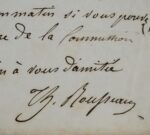 si vous pouvez
de la Commission
à vous d'amitié
Th. Rousseau